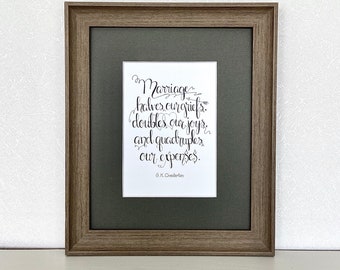 Marriage
halves our griefs,
doubles our joys,
and quadruples
our expenses.
G. K. Chesterton